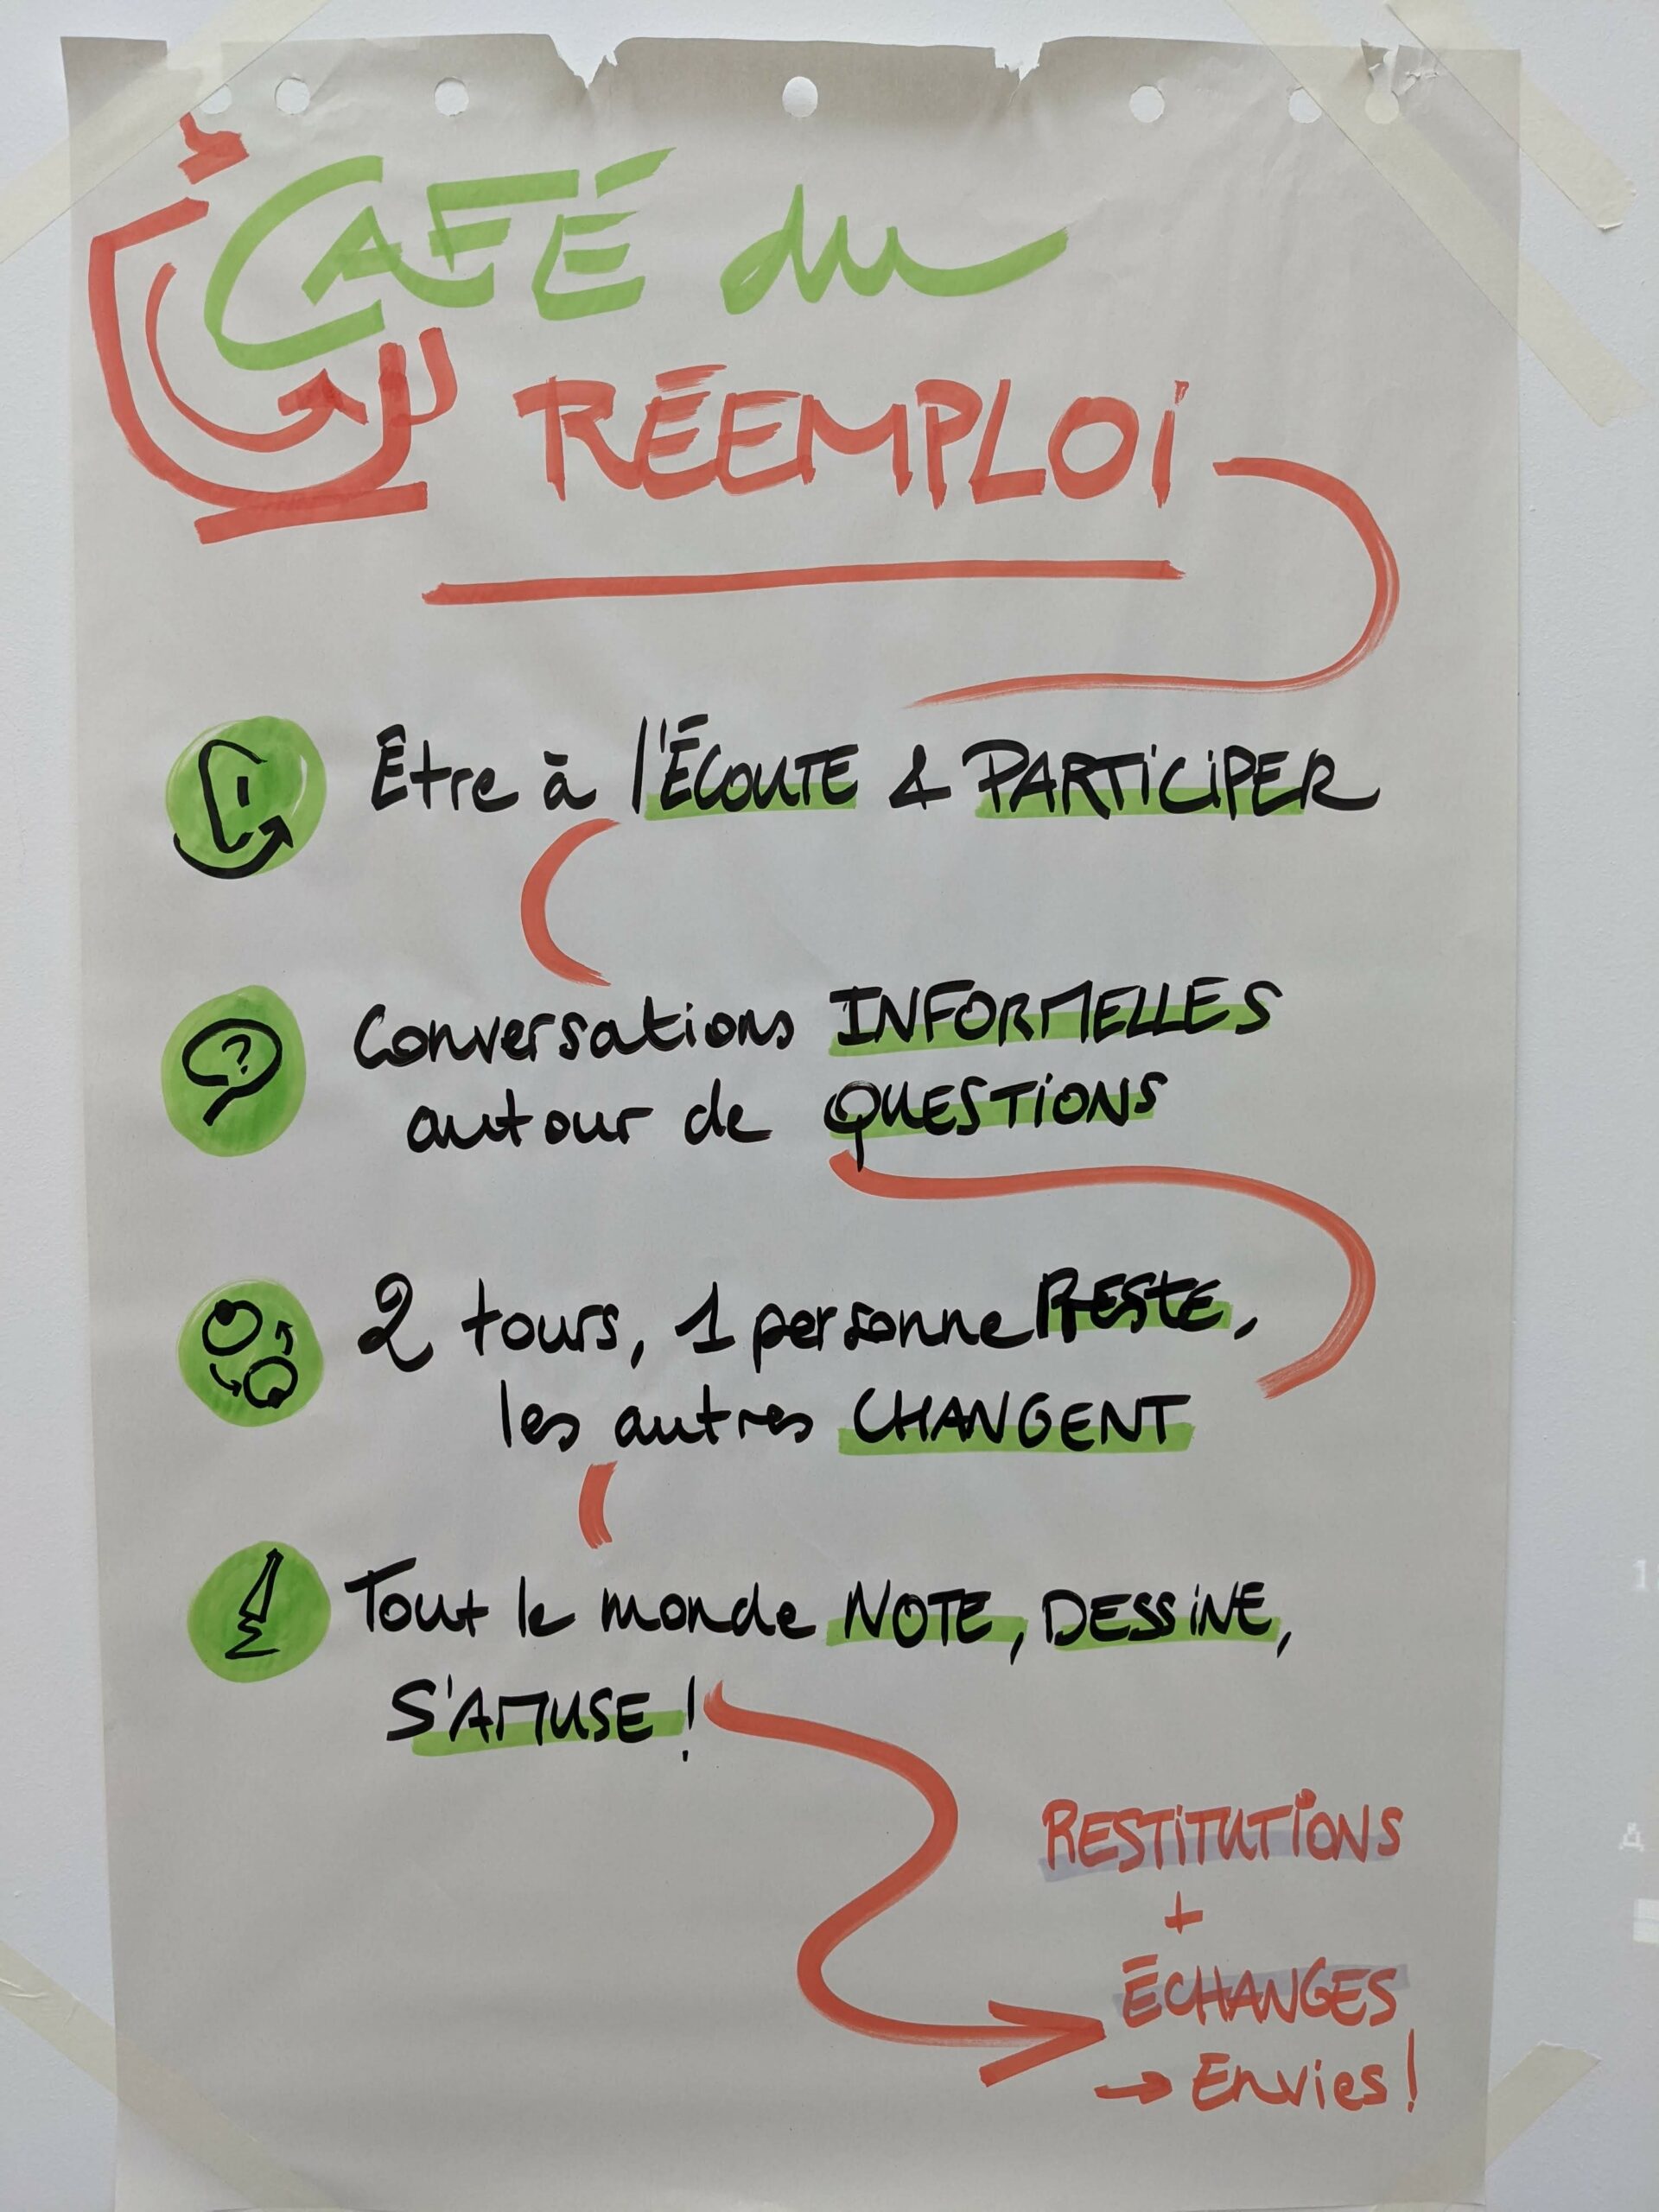 CAFÉ du
RÉEMPLOi
Être à l'ÉCOUTE & PARTiCiPER
Conversations INFORMELLES
autour de QUESTiONS
2 tours, 1 personne RESTE,
les autres CHANGENT
Tout le monde NOTE, DESSiNE,
S'AMUSE !
RESTiTUTiONS
+
ÉCHANGES
→ Envies !